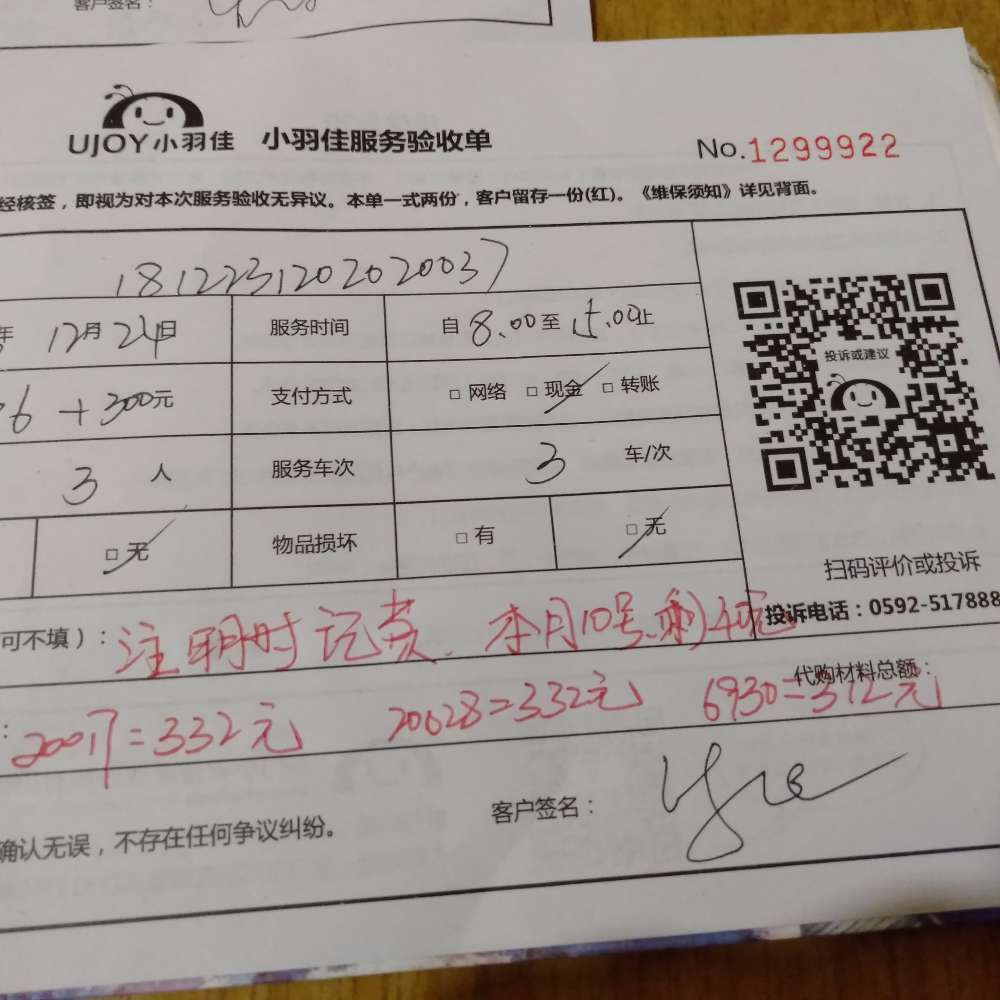 客户签名：
UJOY小羽佳 小羽佳服务验收单
No.1299922
经核签，即视为对本次服务验收无异议。本单一式两份，客户留存一份(红)。《维保须知》详见背面。
1812231202020037
年 12月24日 服务时间 自8.00至15.00止
投诉或建议
6+300元 支付方式 □ 网络 □ 现金 □ 转账
3 人 服务车次 3 车/次
□ 无 物品损坏 □ 有 □ 无
扫码评价或投诉
投诉电话：0592-517888
可不填)： 注明时记卖、本月10号、剩4
代购材料总额：
：2007=332元 20628=332元 6930=372元
确认无误，不存在任何争议纠纷。 客户签名：